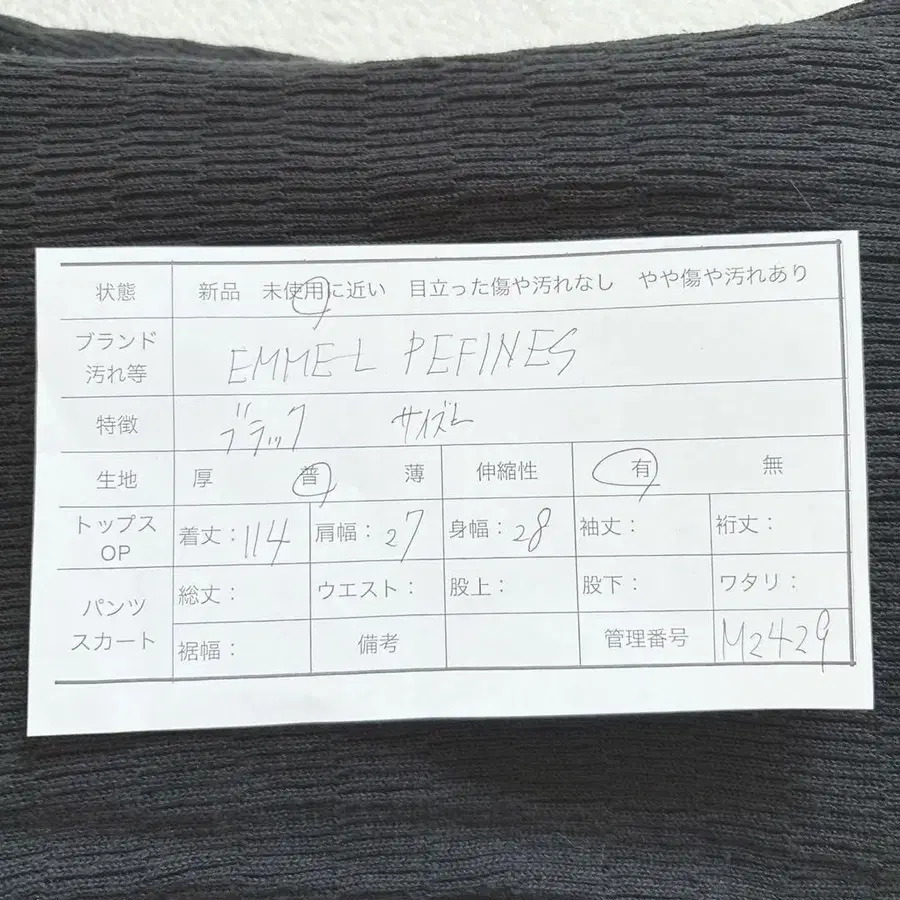 状態 新品 未使用に近い 目立った傷や汚れなし やや傷や汚れあり
ブランド
汚れ等 EMMEL PEFINES
特徴 ブラック サイズL
生地 厚 普 薄 伸縮性 有 無
トップス
OP 着丈：114 肩幅：27 身幅：28 袖丈： 裄丈：
パンツ
スカート 総丈： ウエスト： 股上： 股下： ワタリ：
裾幅： 備考 管理番号 M2429